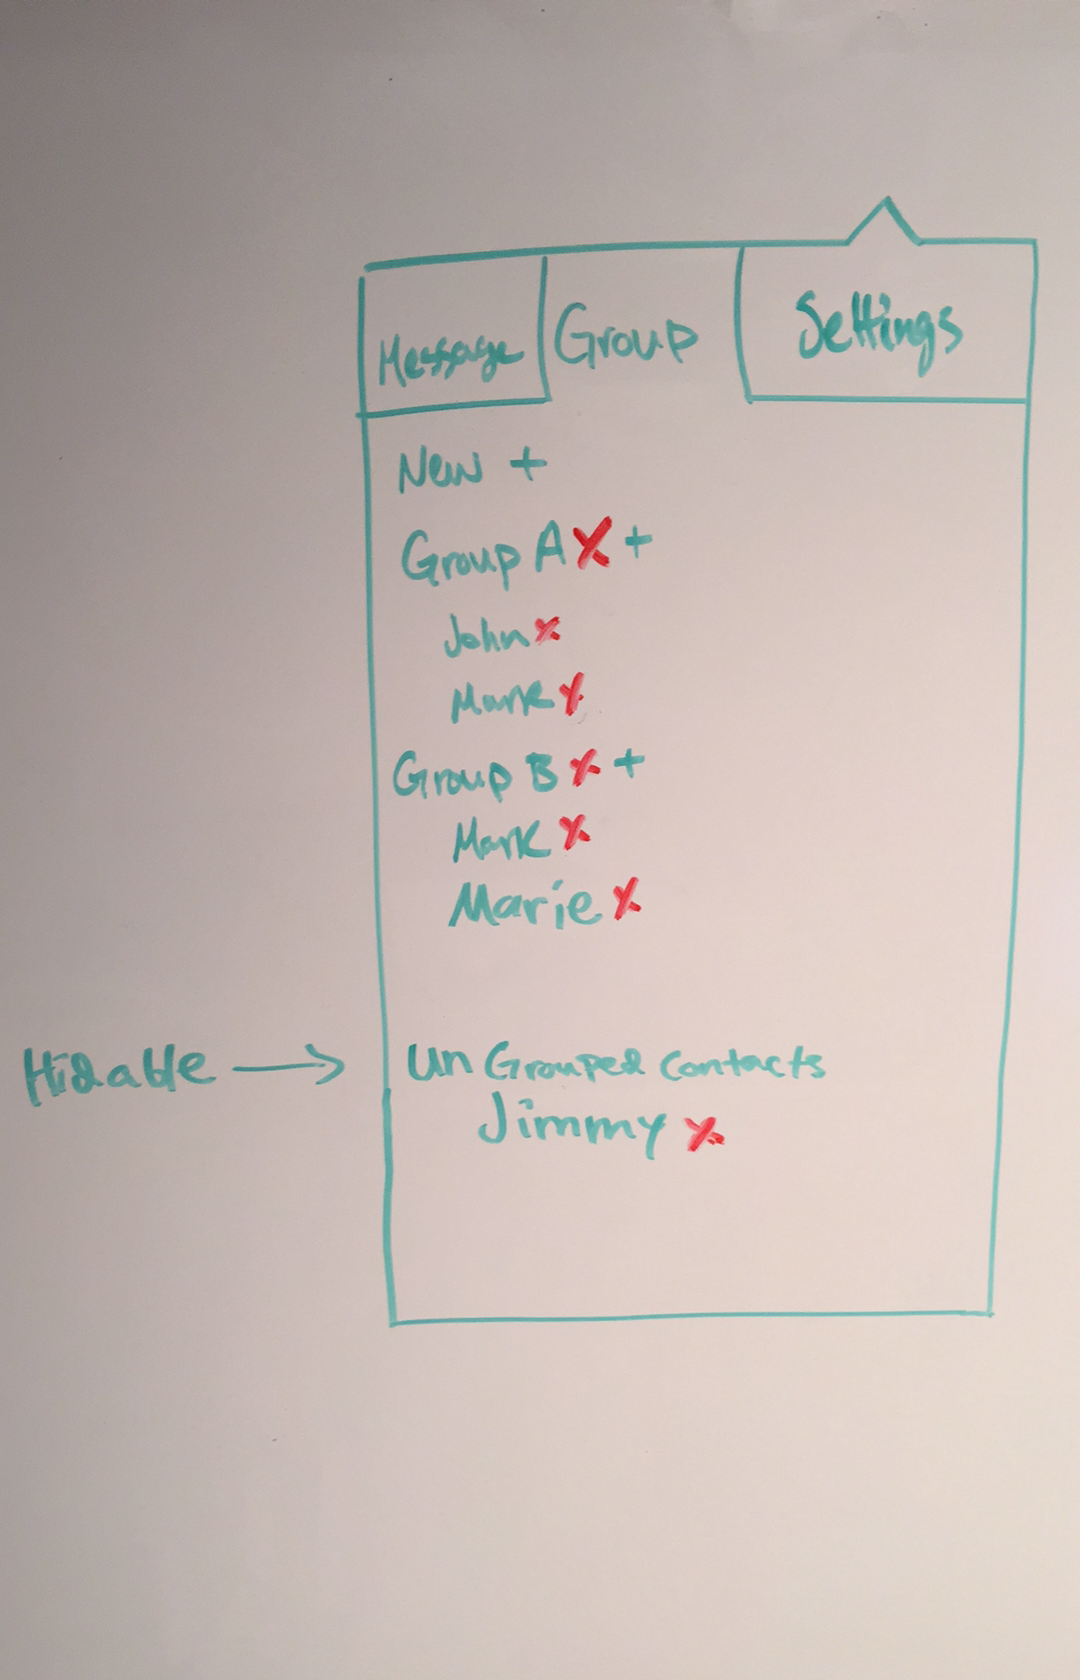 Message Group Settings
New +
Group A X +
John X
Mark X
Group B X +
Mark X
Marie X
Hidable → Un Grouped Contacts
Jimmy X